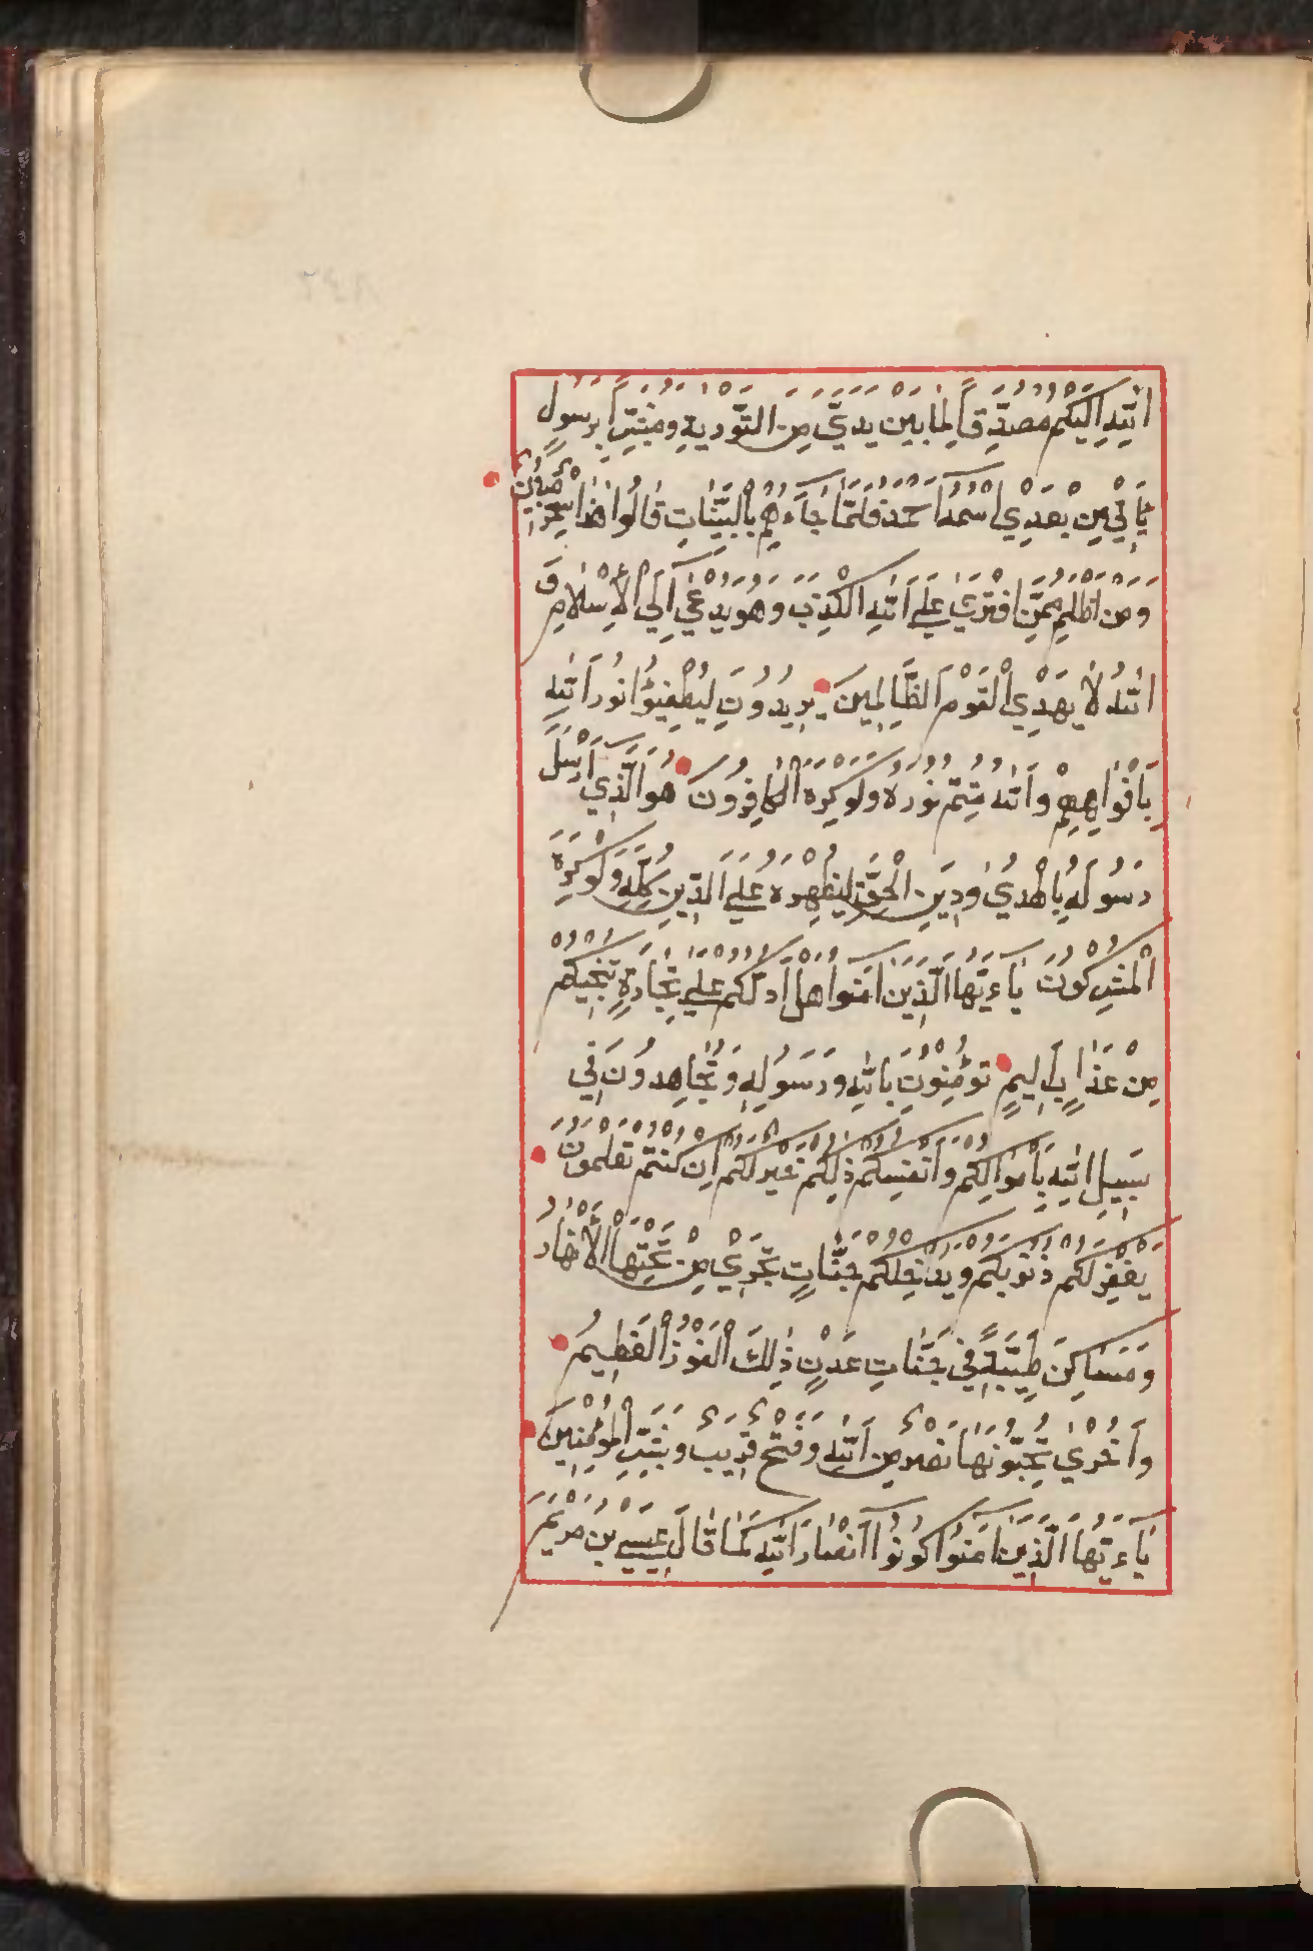 اللّٰهِ اِلَيْكُمْ مُصَدِّقاً لِمَا بَيْنَ يَدَيَّ مِنَ التَّوْرٰيةِ وَمُبَشِّراً بِرَسُولٍ
يَأْتِي مِنْ بَعْدِي اسْمُهُ اَحْمَدُ فَلَمَّا جَاۤءَهُمْ بِالْبَيِّنَاتِ قَالُوا هٰذَا سِحْرٌ مُبِينٌ
وَمَنْ اَظْلَمُ مِمَّنِ افْتَرٰى عَلَى اللّٰهِ الْكَذِبَ وَهُوَ يُدْعٰى اِلَى الْاِسْلَامِ وَ
اللّٰهُ لَا يَهْدِي الْقَوْمَ الظَّالِمِينَ يُرِيدُونَ لِيُطْفِئُوا نُورَ اللّٰهِ
بِاَفْوَاهِهِمْ وَاللّٰهُ مُتِمُّ نُورِهِ وَلَوْ كَرِهَ الْكَافِرُونَ هُوَ الَّذِي اَرْسَلَ
رَسُولَهُ بِالْهُدٰى وَدِينِ الْحَقِّ لِيُظْهِرَهُ عَلَى الدِّينِ كُلِّهِ وَلَوْ كَرِهَ
الْمُشْرِكُونَ يَاۤءَيُّهَا الَّذِينَ اٰمَنُوا هَلْ اَدُلُّكُمْ عَلٰى تِجَارَةٍ تُنْجِيكُمْ
مِنْ عَذَابٍ اَلِيمٍ تُؤْمِنُونَ بِاللّٰهِ وَرَسُولِهِ وَتُجَاهِدُونَ فِي
سَبِيلِ اللّٰهِ بِاَمْوَالِكُمْ وَاَنْفُسِكُمْ ذٰلِكُمْ خَيْرٌ لَكُمْ اِنْ كُنْتُمْ تَعْلَمُونَ
يَغْفِرْ لَكُمْ ذُنُوبَكُمْ وَيُدْخِلْكُمْ جَنَّاتٍ تَجْرِي مِنْ تَحْتِهَا الْاَنْهَارُ
وَمَسَاكِنَ طَيِّبَةً فِي جَنَّاتِ عَدْنٍ ذٰلِكَ الْفَوْزُ الْعَظِيمُ
وَاُخْرٰى تُحِبُّونَهَا نَصْرٌ مِنَ اللّٰهِ وَفَتْحٌ قَرِيبٌ وَبَشِّرِ الْمُؤْمِنِينَ
يَاۤءَيُّهَا الَّذِينَ اٰمَنُوا كُونُوۤا اَنْصَارَ اللّٰهِ كَمَا قَالَ عِيسَى بْنُ مَرْيَمَ